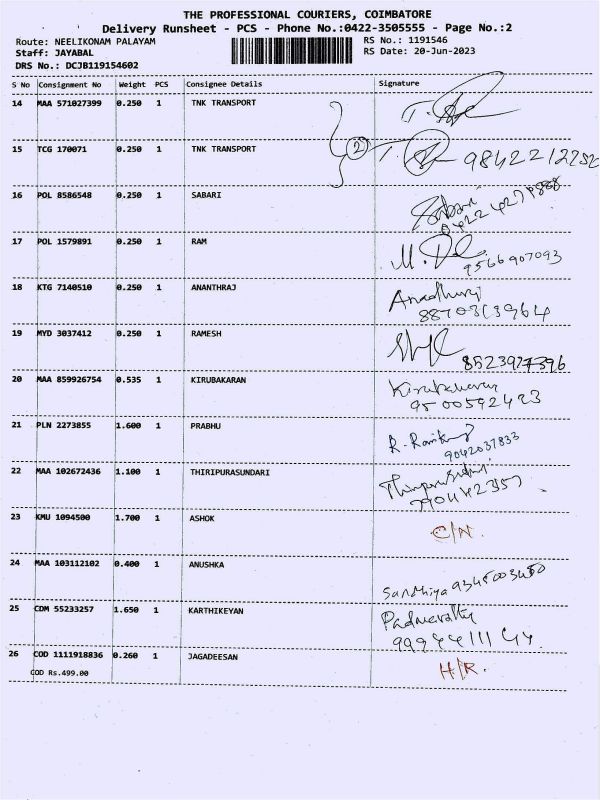 THE PROFESSIONAL COURIERS, COIMBATORE
Delivery Runsheet - PCS - Phone No.:0422-3505555 - Page No.:2
Route: NEELIKONAM PALAYAM
RS No.: 1191546
Staff: JAYABAL
RS Date: 20-Jun-2023
DRS No.: DCJB119154602
S No Consignment No Weight PCS Consignee Details Signature
14 MAA 571027399 0.250 1 TNK TRANSPORT
15 TCG 170071 0.250 1 TNK TRANSPORT 2
16 POL 8586548 0.250 1 SABARI Sabari
17 POL 1579891 0.250 1 RAM
9566907093
18 KTG 7140510 0.250 1 ANANTHRAJ
19 MYD 3037412 0.250 1 RAMESH
8523977396
20 MAA 859926754 0.535 1 KIRUBAKARAN Kirubakaran
9500592423
21 PLN 2273855 1.600 1 PRABHU
9042037833
22 MAA 102672436 1.100 1 THIRIPURASUNDARI
790442357
23 KMU 1094500 1.700 1 ASHOK C/N.
24 MAA 103112102 0.400 1 ANUSHKA
Sandhiya 9345003450
25 CDM 55233257 1.650 1 KARTHIKEYAN
26 COD 1111918836 0.260 1 JAGADEESAN H/R.
COD Rs.499.00